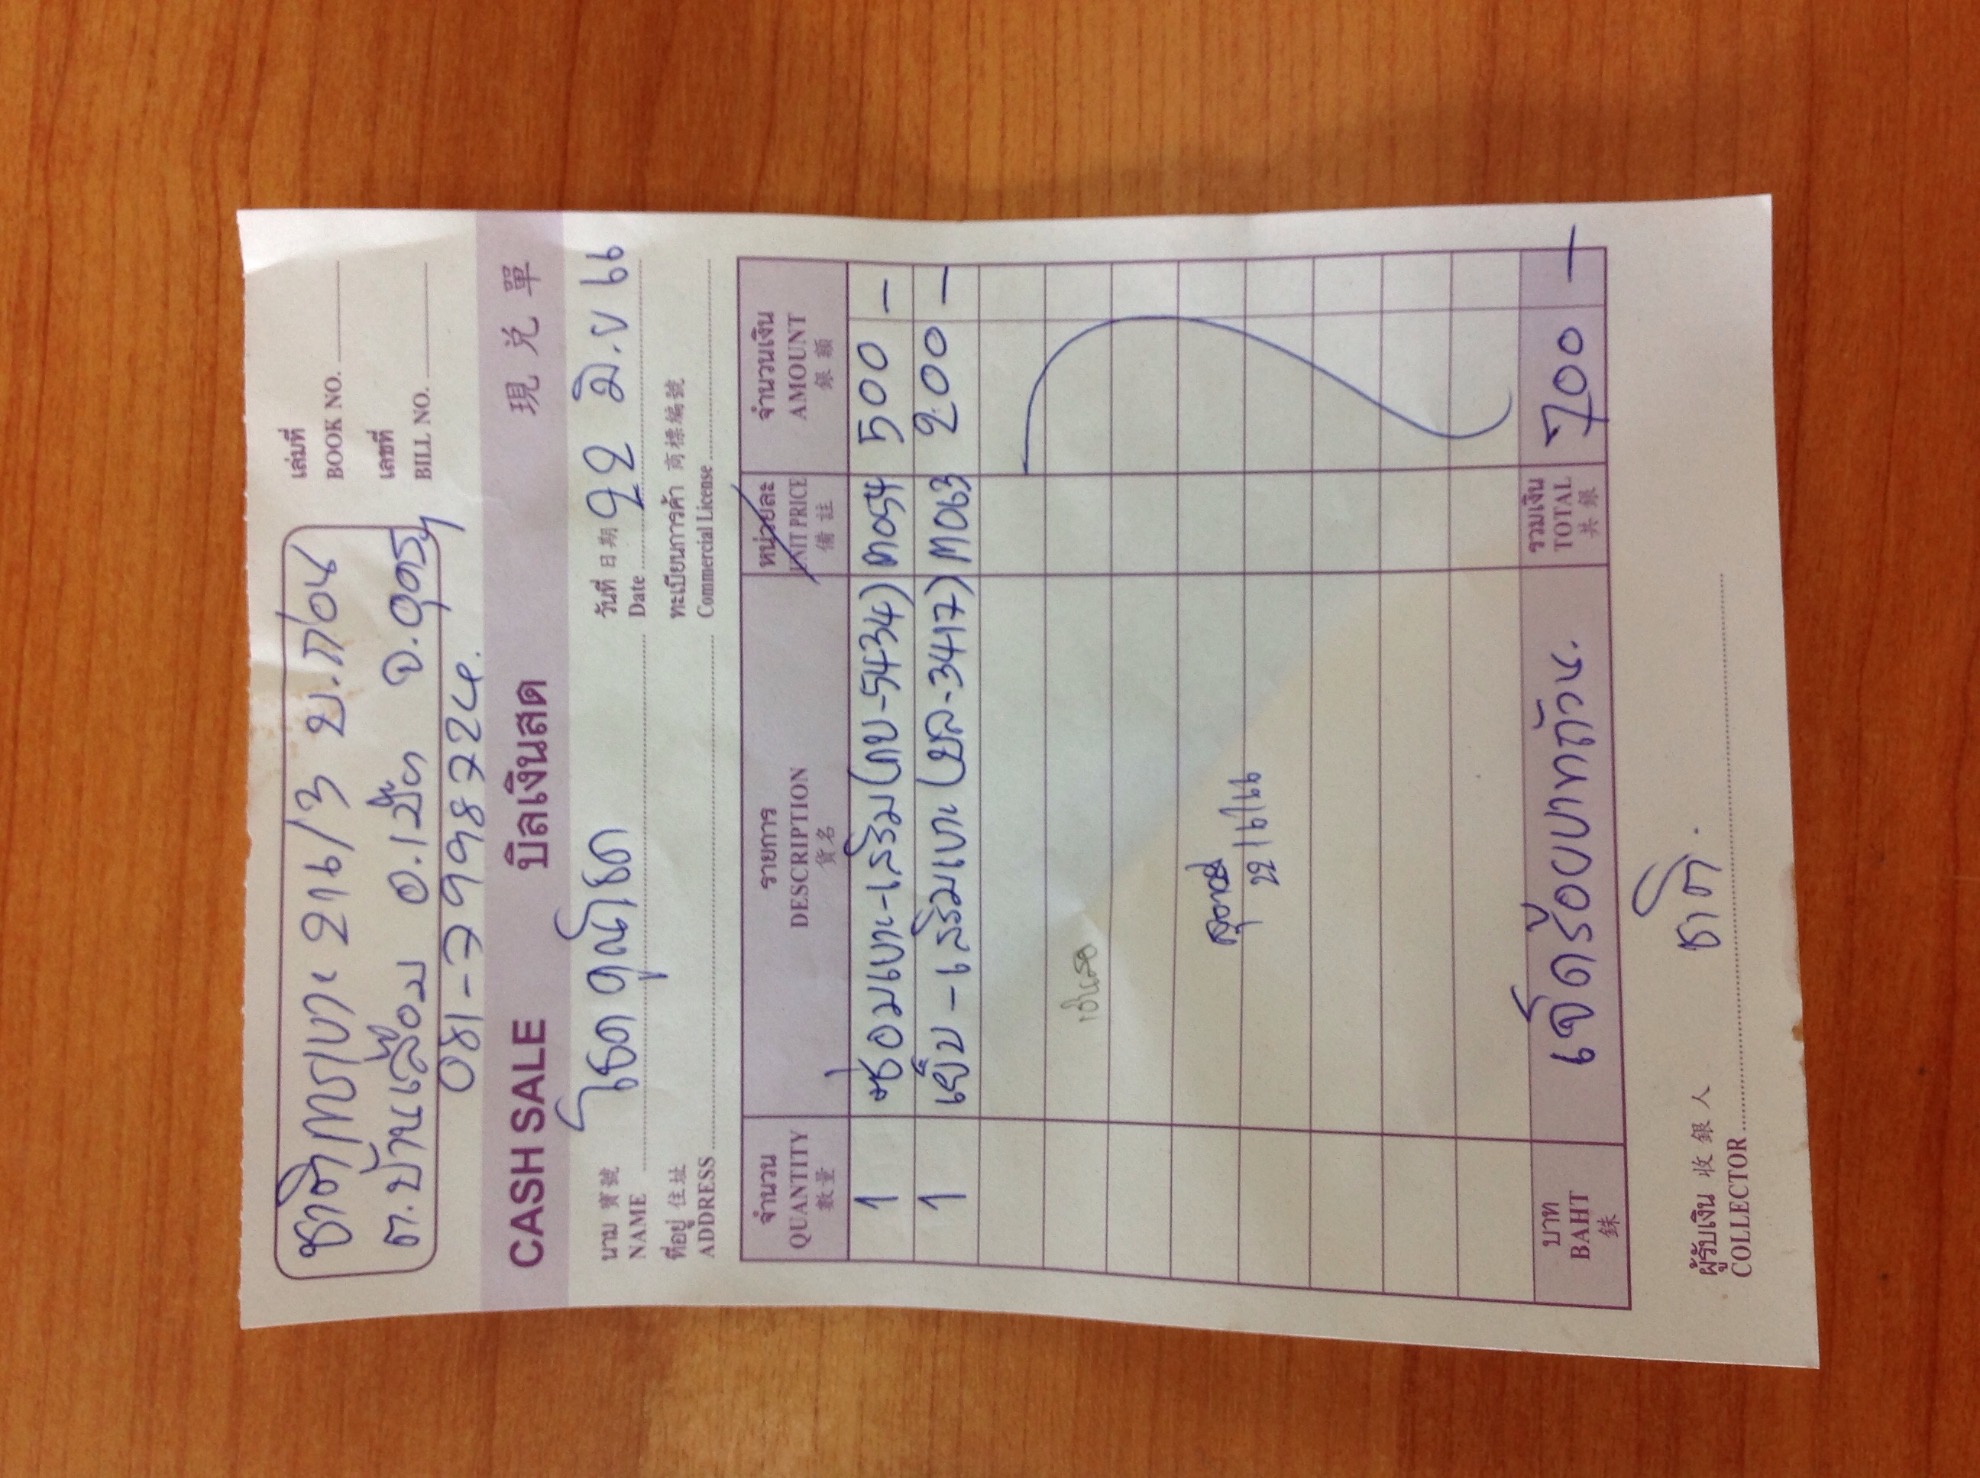 ชาติการเบาะ 216/3 บ.ก่อน
ต.บ้านเลื่อม อ.เมือง จ.อุดรฯ
081-7998724.
เล่มที่
BOOK NO.
เลขที่
BILL NO.
CASH SALE บิลเงินสด 現兌單
นาม 寶號
NAME
วันที่ 日期 22 มิ.ย 66
Date
ที่อยู่ 住址
ADDRESS
ทะเบียนการค้า 商標編號
Commercial License
จำนวน รายการ หน่วยละ จำนวนเงิน
QUANTITY DESCRIPTION UNIT PRICE AMOUNT
數量 貨名 備註 銀額
1 ซ่อมเบาะ-เสริม (กบ-5434) ท054 500 -
1 เย็บ - เสริมเบาะ (ยล-3417) ท063 200 -
22/6/66
บาท เจ็ดร้อยบาทถ้วน. รวมเงิน 700 -
BAHT TOTAL
銖 共銀
ผู้รับเงิน 收銀人 ชาติ.
COLLECTOR